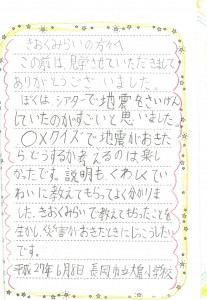 きおくみらいの方々へ
この前は、見学させていただきまして
ありがとうございました。
ぼくは、シアターで地震をさいげん
していたのがすごいと思いました。
○×クイズで地震がおきた
らどうするか考えるのは楽し
かったです。説明もくわしくてい
ねいに教えてもらってよく分かりま
した。きおくみらいで教えてもらったことを
生かし、災害がおきたときにじっこうしたい
です。
平成27年6月8日 長岡市立大島小学校